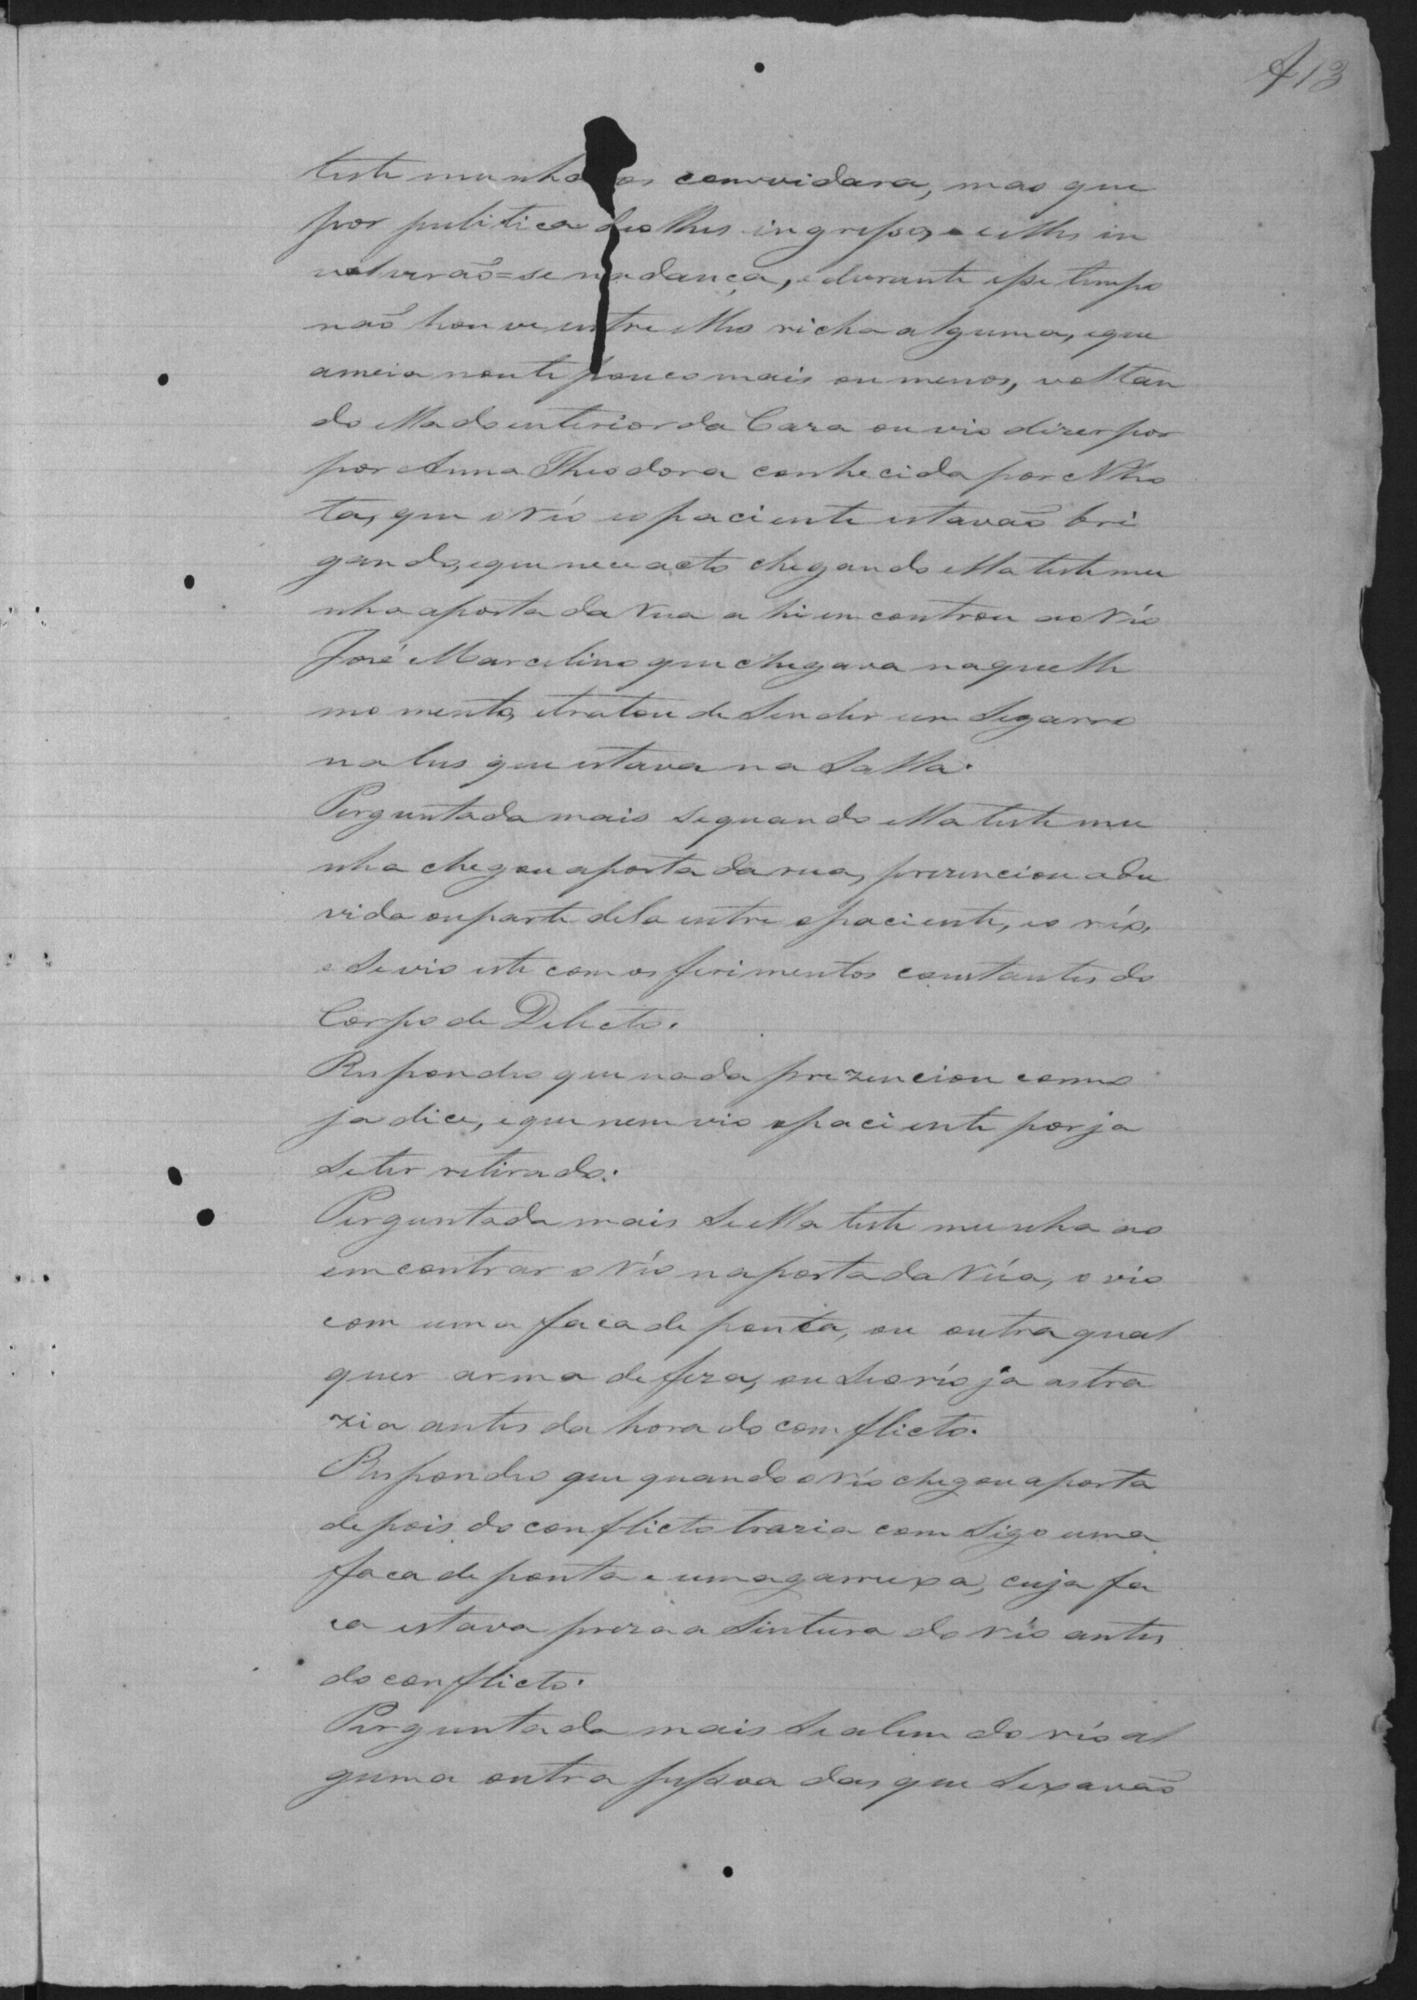 413
testemunha os convidara, mas que
por pulitica deo lhes ingresso, e elles in
volverão=se na dança, e durante esse tempo
não houve entre elles richa alguma, e que
a meia noute pouco mais ou menos, voltan
do ella do interior da Caza ouvio dizer por
por Anna Theodora conhecida por Nho
ta, que o réo e o paciente estavão bri
gando, e que nece acto chegando ella testemu
nha a porta da rua ahi emcontrou ao réo
José Marcelino que chegava naquelle
momento, e tratou de Sender um Segarro
na lus que estava na Salla.
Perguntada mais se quando ella testemu
nha chegou a porta da rua, prezenciou a du
vida ou parte dela entre o paciente, e o réo,
e Se vio este com os ferimentos constantes do
Corpo de Delicto.
Respondeo que nada prezenciou como
ja dice, e que nem vio o paciente por ja
Se ter retirado.
Perguntada mais Se ella testemunha ao
emcontrar o réo na porta da rúa, o vio
com uma faca de ponta, ou outra qual
quer arma defeza, ou Se o réo ja as tra
zia antes da hora do comflicto.
Respondeo que quando o réo chegou a porta
depois do conflicto trazia com Sigo uma
faca de ponta e uma garruxa, cuja fa
ca estava preza a Sintura do réo antes
do conflicto.
Perguntada mais Se alem do réo al
guma outra pessoa das que Sexavão